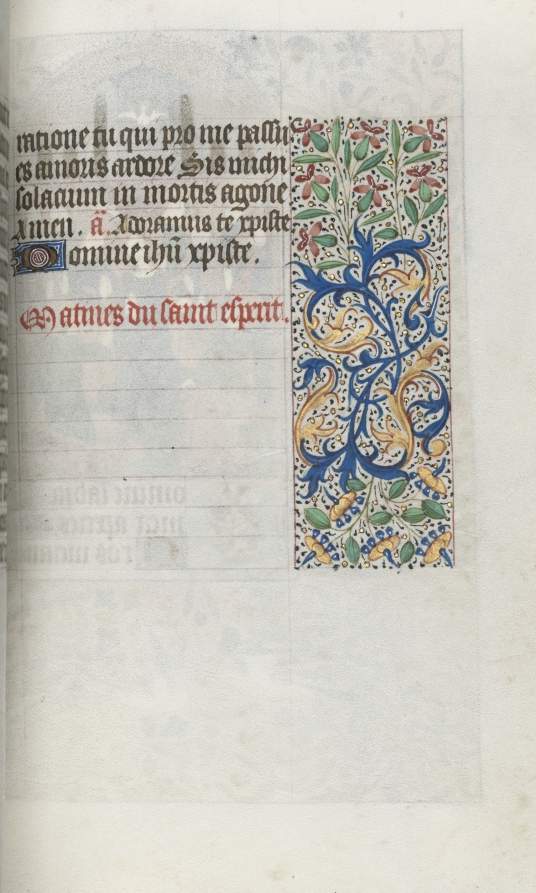 ratione tu qui pro me passus
es amoris ardore Sis michi
solacium in mortis agone
Amen. añ. Adoramus te xpiste
Domine ihũ xpiste.
Matines du saint esperit.